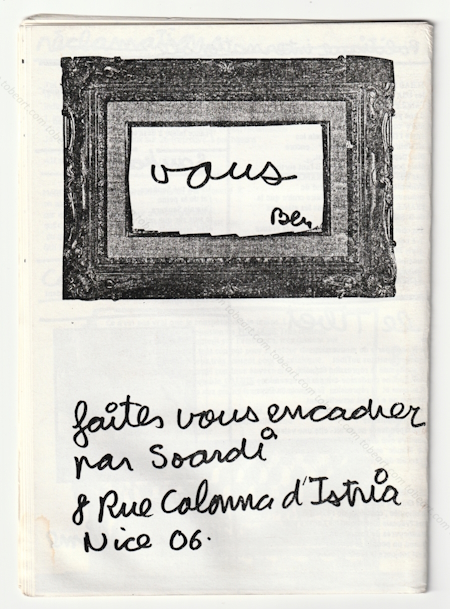 vous
Ben
faites vous encadrer
par Soardi
8 Rue Colonna d'Istria
Nice 06.